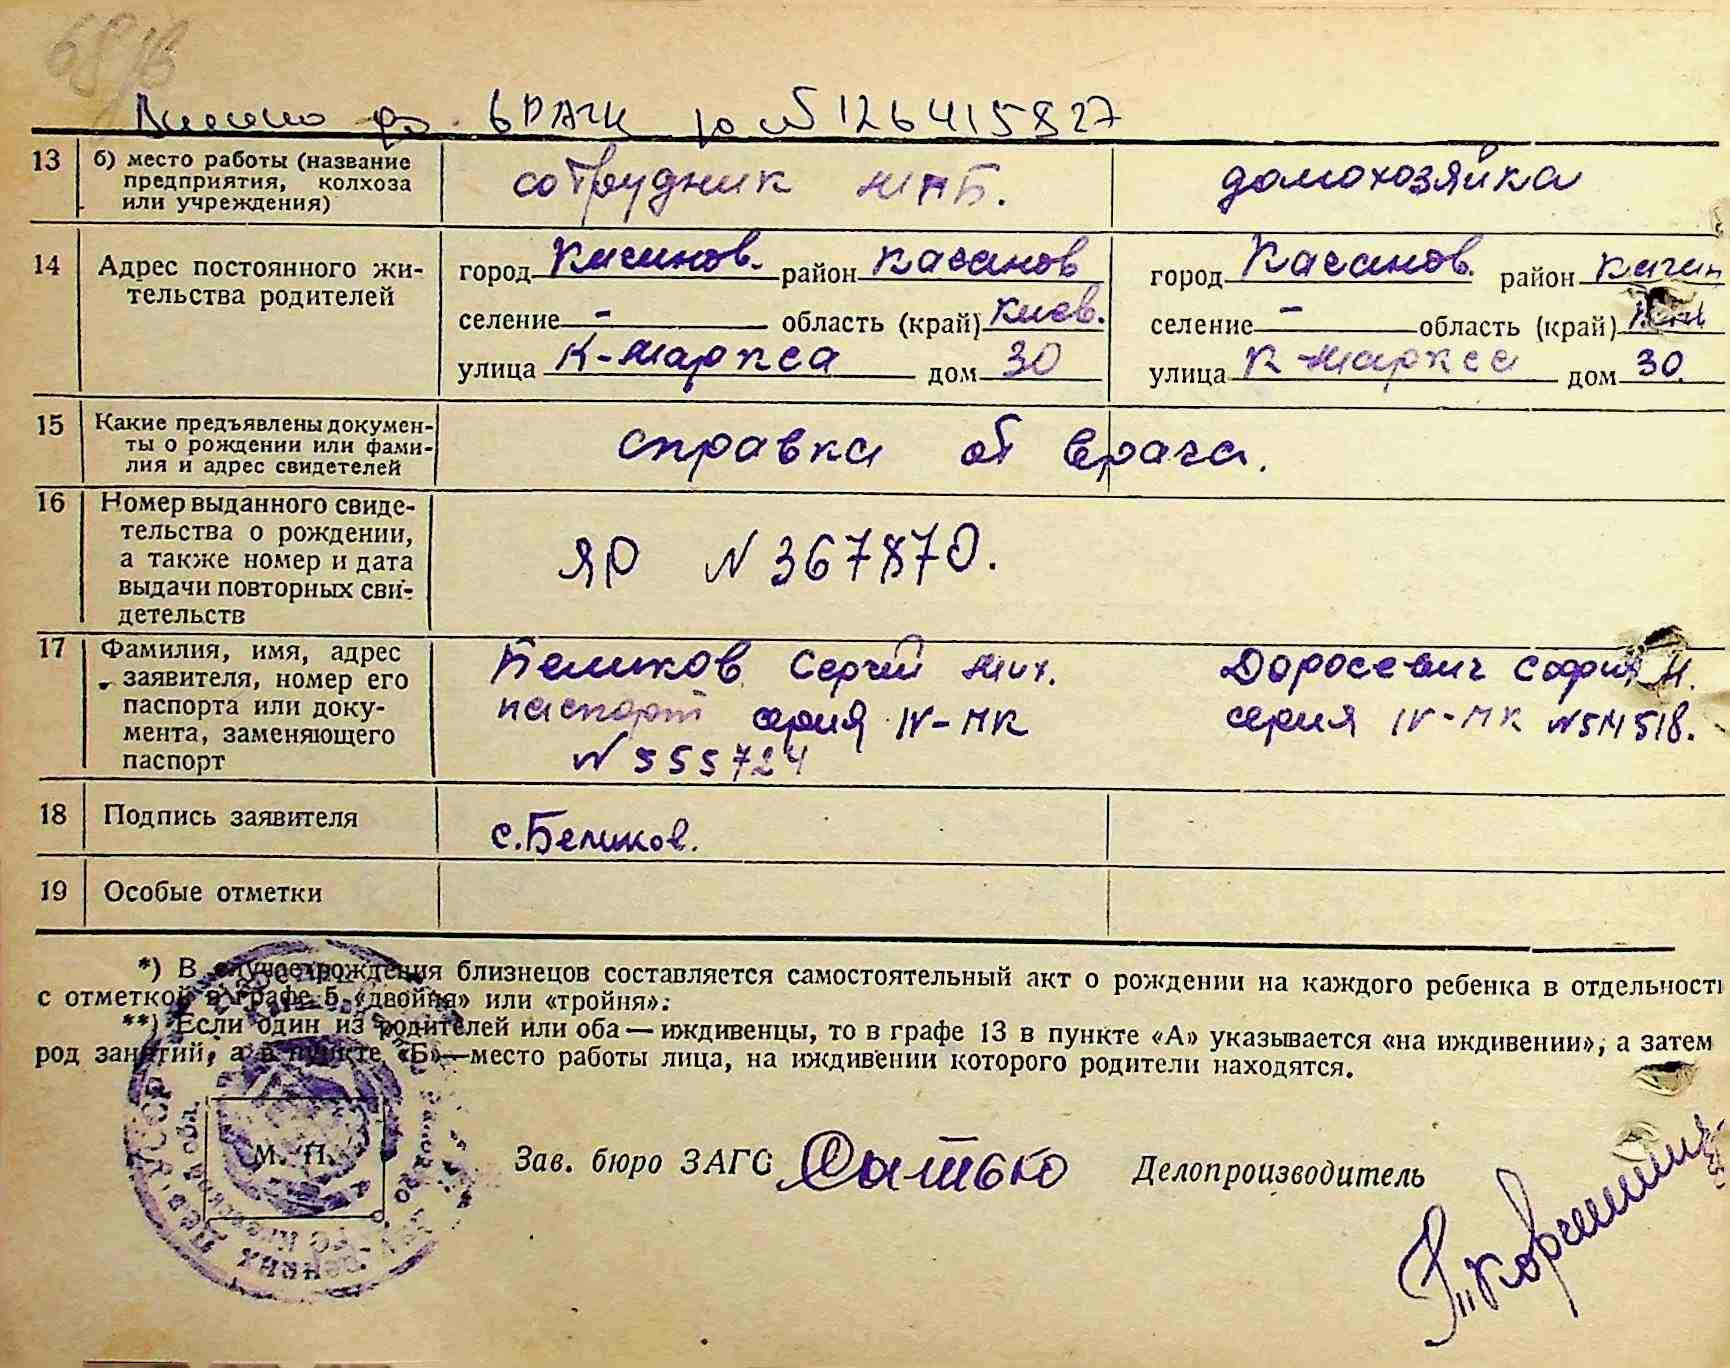 689в
Внесено до ЄДРАЦС за №126415827
13 б) место работы (название сотрудник МГБ. домохозяйка
предприятия, колхоза
или учреждения)
14 Адрес постоянного жи- город район Каганов город Каганов. район Каган
тельства родителей селение - область (край) Киев. селение - область (край)
улица К-Маркса дом 30 улица К Маркса дом 30.
15 Какие предъявлены докумен- справка от врача.
ты о рождении или фами-
лия и адрес свидетелей
16 Номер выданного свиде-
тельства о рождении,
а также номер и дата ЯР N 367870.
выдачи повторных сви-
детельств
17 Фамилия, имя, адрес Беликов Сергей Мих. Доросевич София М.
заявителя, номер его паспорт серия IV-МК серия IV-МК N 514518.
паспорта или доку- N 555724
мента, заменяющего
паспорт
18 Подпись заявителя С.Беликов.
19 Особые отметки
*) В случае рождения близнецов составляется самостоятельный акт о рождении на каждого ребенка в отдельности
с отметкой в графе 5 «двойня» или «тройня».
**) Если один из родителей или оба — иждивенцы, то в графе 13 в пункте «А» указывается «на иждивении», а затем
род занятий, а в пункте «Б»—место работы лица, на иждивении которого родители находятся.
М. П.
Зав. бюро ЗАГС Делопроизводитель